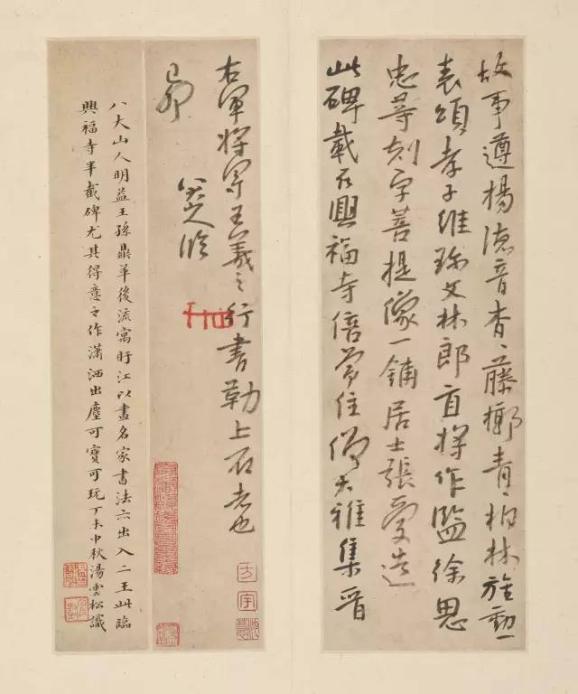 故事遵楊德音杳〻藤鄉青〻柏林旌勳
表頌孝子維珎文林郎直將作監徐思
忠等刻字菩提像一鋪居士張愛造
此碑載在興福寺倍常住僧大雅集晉
右軍將軍王羲之行書勒上石者也
己卯
八大山人臨
八大山人明益王孫鼎革後流寓盱江以畫名家書法亦出入二王此臨
興福寺半截碑尤其得意之作瀟洒出塵可寶可玩丁未中秋湯雲松識